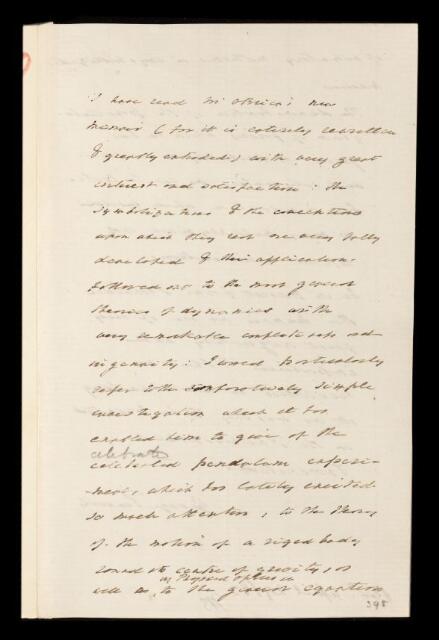 I have read Mr O'Brien's new
memoir (for it is entirely rewritten
& greatly extended) with very great
interest and satisfaction: the
symbolizations & the conventions
upon which they rest are very fully
developed & their applications
followed out to the most general
theories of dynamics with
very remarkable completeness and
ingenuity: I would particularly
refer to the comparatively simple
investigation which it has
enabled him to give of the
celebrated
celebrated pendulum experi-
-ment, which has lately excited
so much attention, to the theory
of the motion of a rigid body
round its centre of gravity, as
in Physical Optics
well as, to the general equations
398